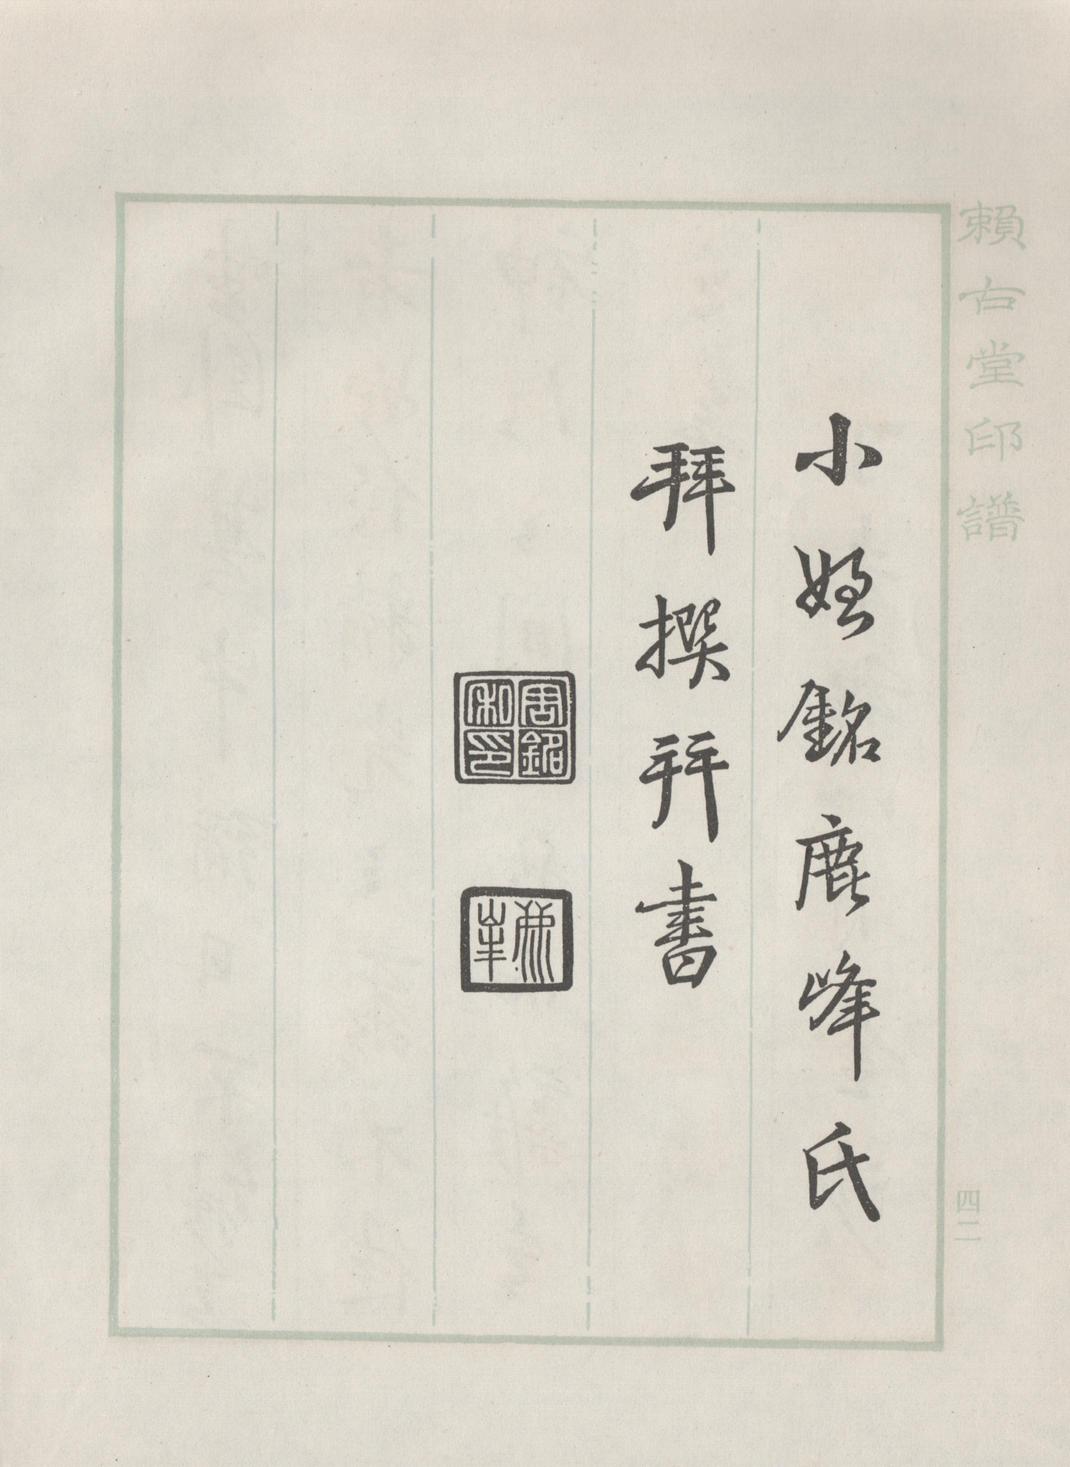 賴古堂印譜
四二
小姪銘鹿峰氏
拜撰拜書
周銘私印
鹿峯